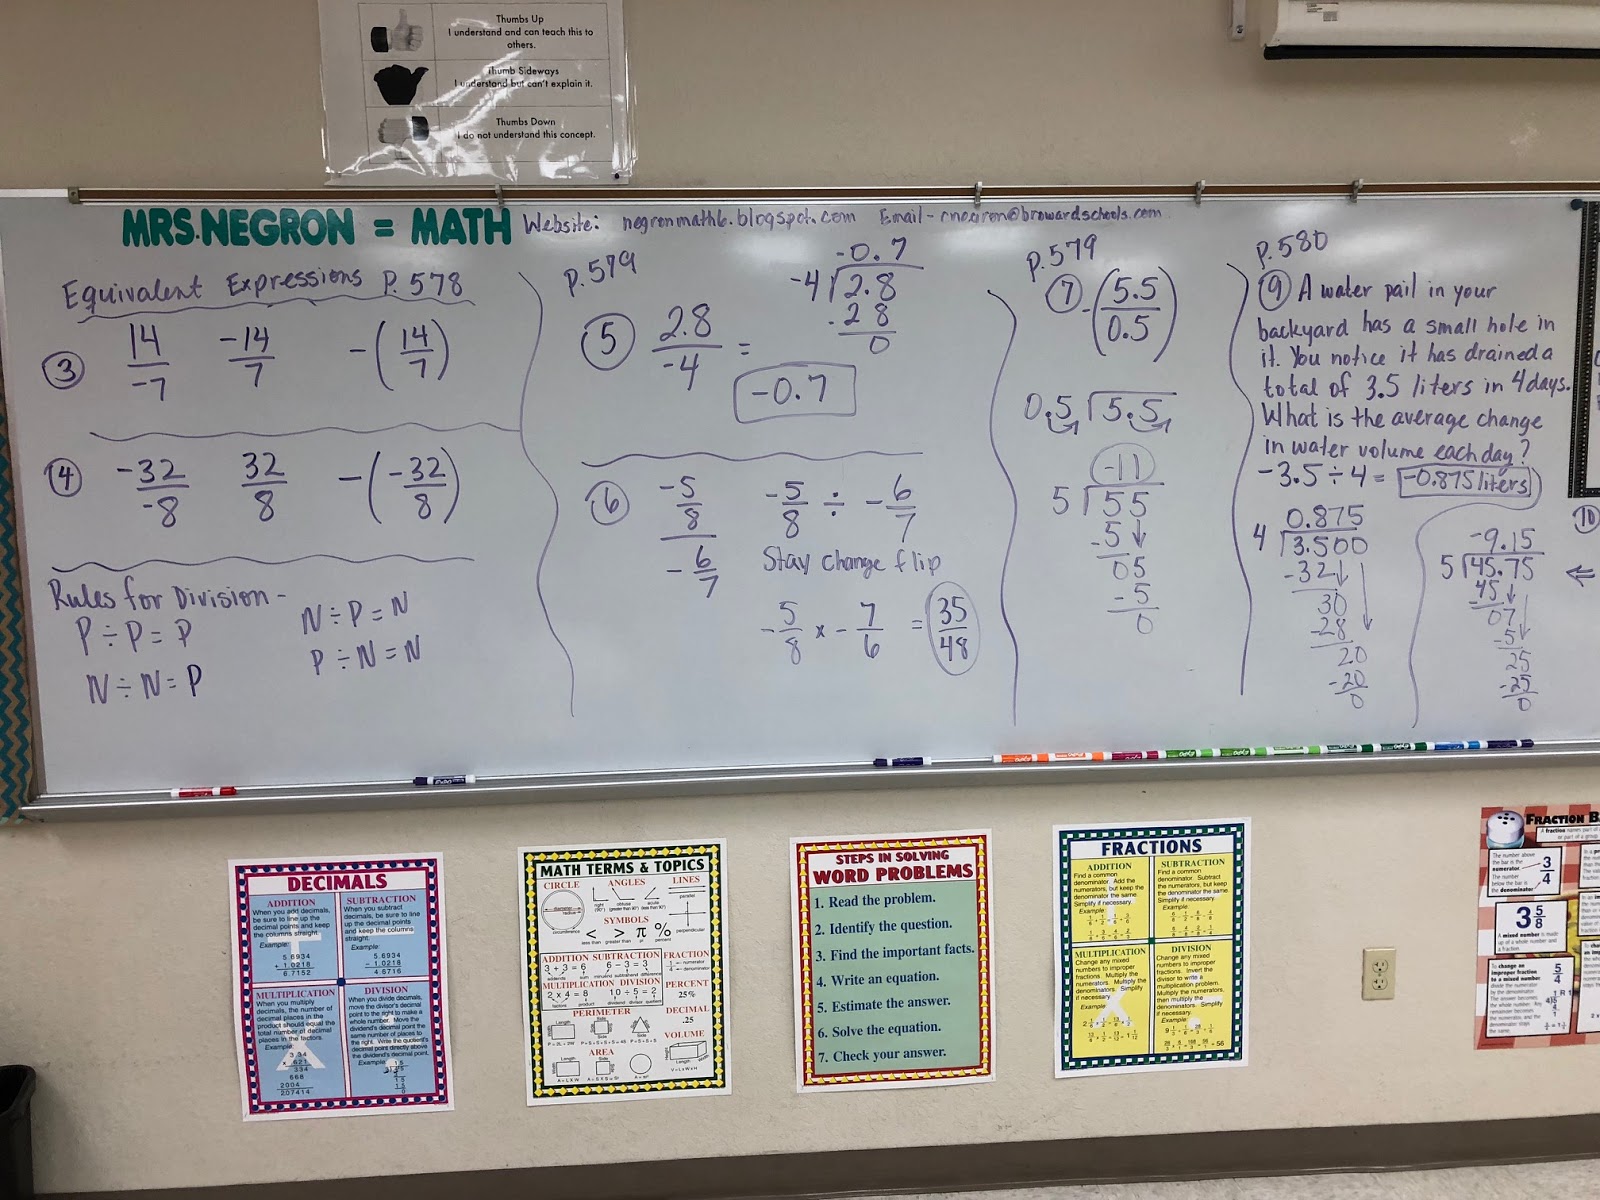 Thumbs Up
I understand and can teach this to
others.
Thumb Sideways
I understand but can't explain it.
Thumbs Down
I do not understand this concept.
MRS. NEGRON = MATH
Website: negronmath6.blogspot.com Email - cnegron@browardschools.com
Equivalent Expressions P. 578
③ 14/-7 -14/7 -(14/7)
④ -32/-8 32/8 -(-32/8)
Rules for Division -
P ÷ P = P
N ÷ N = P
N ÷ P = N
P ÷ N = N
P. 579
⑤ 2.8/-4 =
-0.7
-4 2.8
- 2 8
0
-0.7
⑥ -5/8 / -6/7
-5/8 ÷ -6/7
Stay change flip
-5/8 × -7/6 = 35/48
P. 579
⑦ -(5.5/0.5)
0.5 5.5
-11
5 55
-5
05
-5
0
P. 580
⑨ A water pail in your
backyard has a small hole in
it. You notice it has drained a
total of 3.5 liters in 4 days.
What is the average change
in water volume each day?
-3.5 ÷ 4 = -0.875 liters
0.875
4 3.500
-32
30
-28
20
-20
0
⑩
-9.15
5 45.75
-45
07
-5
25
-25
0
DECIMALS
ADDITION
When you add decimals,
be sure to line up the
decimal points and keep
the columns straight.
Example:
5.6934
+ 1.0218
6.7152
SUBTRACTION
When you subtract
decimals, be sure to line
up the decimal points
and keep the columns
straight.
Example:
5.6934
- 1.0218
4.6716
MULTIPLICATION
When you multiply
decimals, the number of
decimal places in the
product should equal the
total number of decimal
places in the factors.
Example:
3.34
x .621
334
668
2004
207414
DIVISION
When you divide decimals,
move the divisor's decimal
point to the right to make a
whole number. Move the
dividend's decimal point the
same number of places to
the right. Write the quotient's
decimal point directly above
the dividend's decimal point.
Example:
MATH TERMS & TOPICS
CIRCLE
ANGLES
LINES
diameter
radius
circumference
right
obtuse
acute
parallel
perpendicular
SYMBOLS
< > π %
less than greater than pi percent
ADDITION
3 + 3 = 6
addends sum
SUBTRACTION
6 - 3 = 3
minuend subtrahend difference
FRACTION
1/4
numerator
denominator
MULTIPLICATION
2 x 4 = 8
factors product
DIVISION
10 ÷ 5 = 2
dividend divisor quotient
PERCENT
25%
PERIMETER
DECIMAL
.25
AREA
VOLUME
STEPS IN SOLVING
WORD PROBLEMS
1. Read the problem.
2. Identify the question.
3. Find the important facts.
4. Write an equation.
5. Estimate the answer.
6. Solve the equation.
7. Check your answer.
FRACTIONS
ADDITION
Find a common
denominator. Add the
numerators, but keep
the denominator the same.
Simplify if necessary.
Example:
SUBTRACTION
Find a common
denominator. Subtract
the numerators, but keep
the denominator the same.
Simplify if necessary.
Example:
MULTIPLICATION
Change any mixed
numbers to improper
fractions. Multiply the
numerators. Multiply the
denominators. Simplify
if necessary.
Example:
DIVISION
Change any mixed
numbers to improper
fractions. Invert the
divisor to write a
multiplication problem.
Multiply the numerators,
then multiply the
denominators. Simplify
if necessary.
Example:
FRACTION B
The number above
the bar is the
numerator.
The number
below the bar is
the denominator.
3/4
3 5/8
A mixed number is made
up of a whole number and
a fraction.
To change an
improper fraction
to a mixed number,
5/4